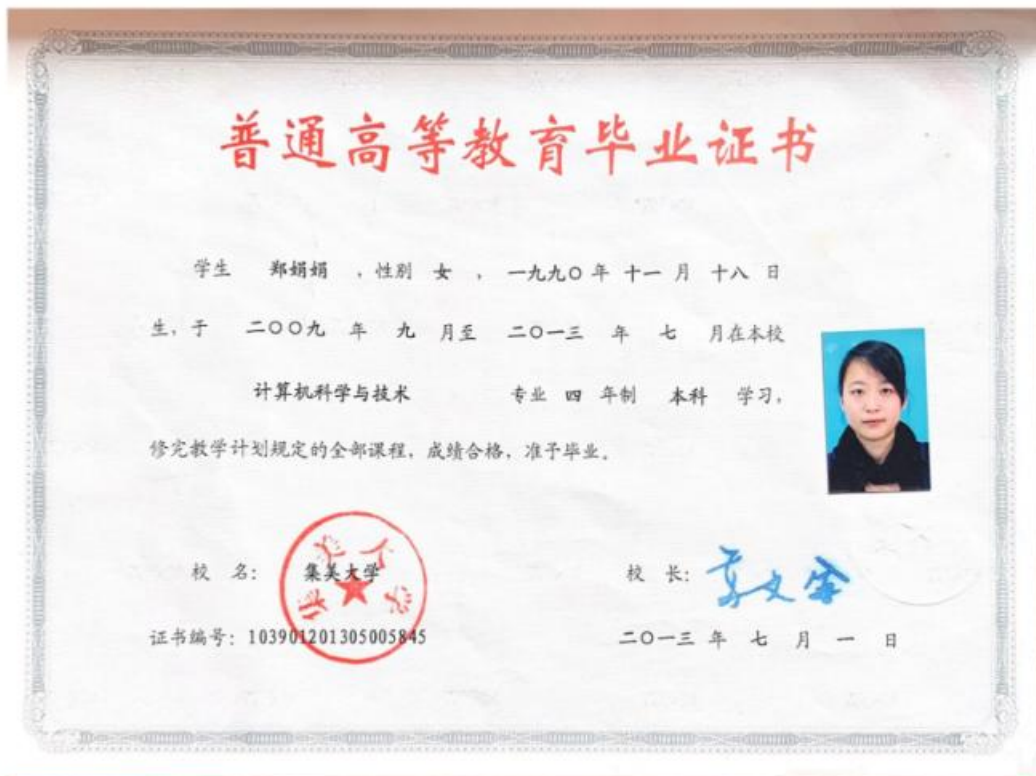 普通高等教育毕业证书
学生 郑娟娟 ,性别 女 , 一九九〇 年 十一 月 十八 日
生,于 二〇〇九 年 九 月至 二〇一三 年 七 月在本校
计算机科学与技术 专业 四 年制 本科 学习,
修完教学计划规定的全部课程,成绩合格,准予毕业。
校 名: 集美大学 校 长:
证书编号:103901201305005845 二〇一三 年 七 月 一 日